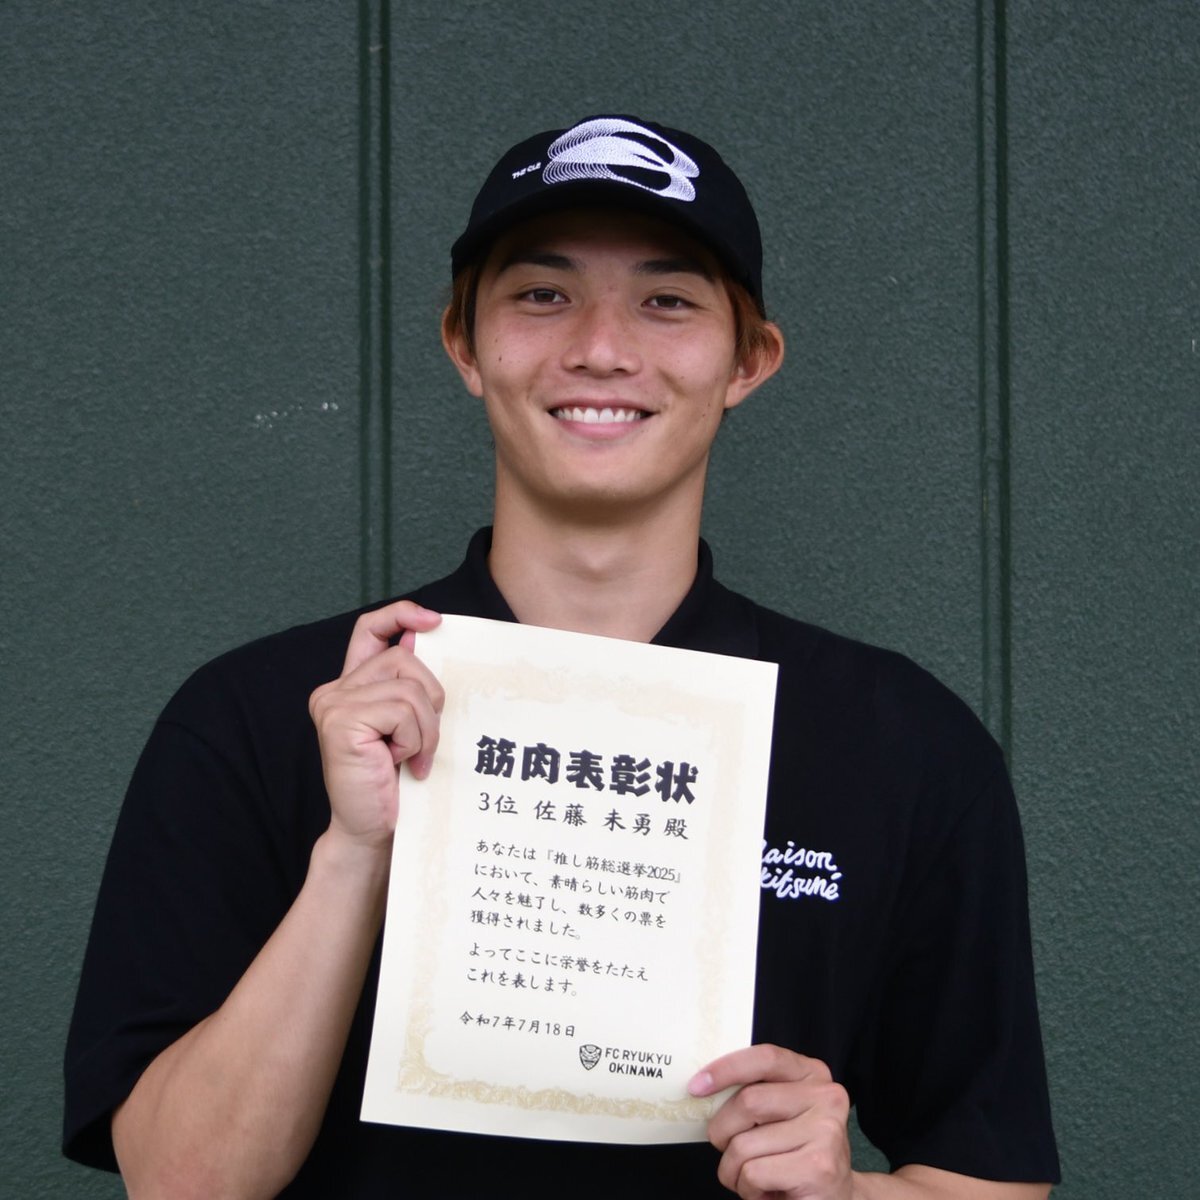 THE CLE
筋肉表彰状
3位 佐藤 未勇 殿
あなたは『推し筋総選挙2025』
において、素晴らしい筋肉で
人々を魅了し、数多くの票を
獲得されました。
よってここに栄誉をたたえ
これを表します。
令和7年7月18日
FC RYUKYU
OKINAWA
aison
kitsuné